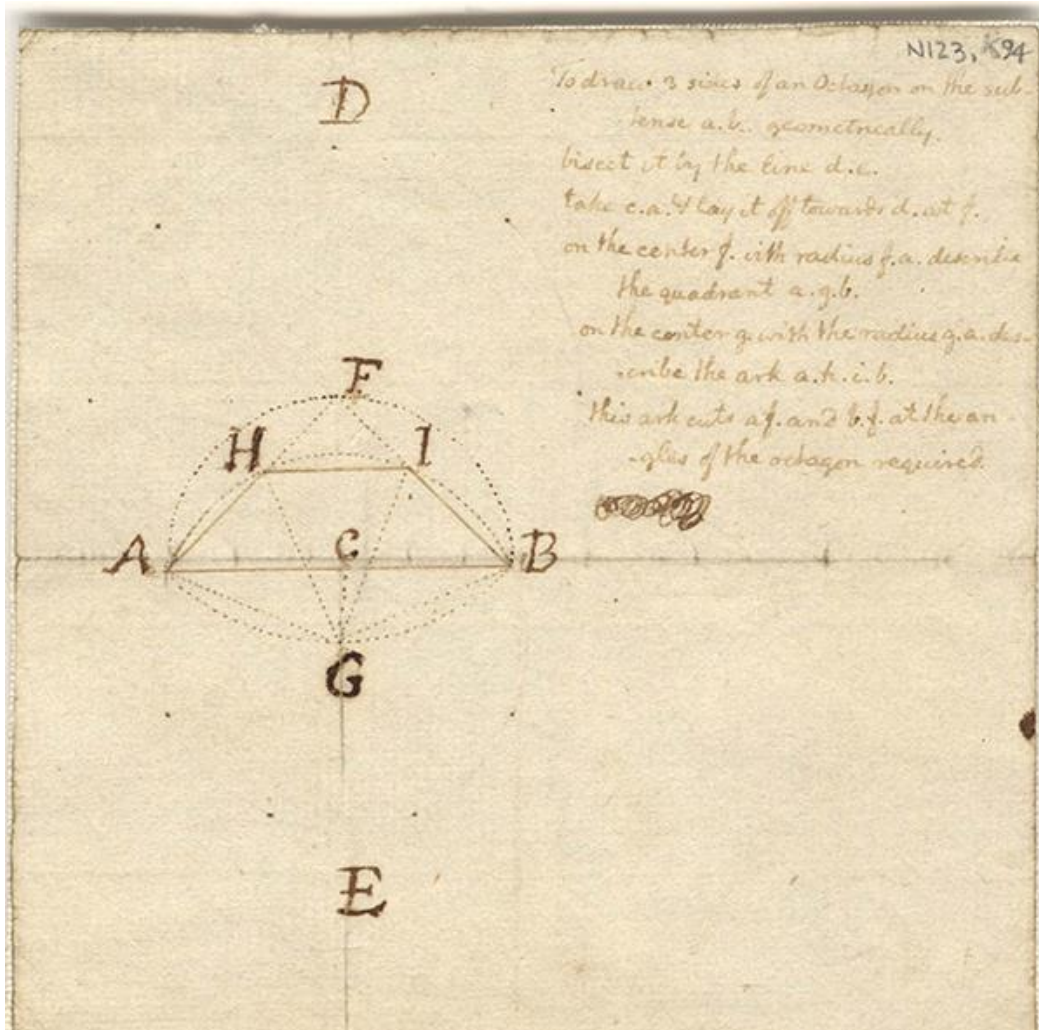 N123, K94
D
To draw 3 sides of an Octagon on the sub-
tense a.b. geometrically.
bisect it by the line d.e.
take c.a. & lay it off towards d. at f.
on the center f. with radius f.a. describe
the quadrant a.g.b.
on the center g. with the radius g.a. des-
-cribe the ark a.h.i.b.
this ark cuts a.f. and b.f. at the an-
-gles of the octagon required.
F
H
I
A
C
B
G
E